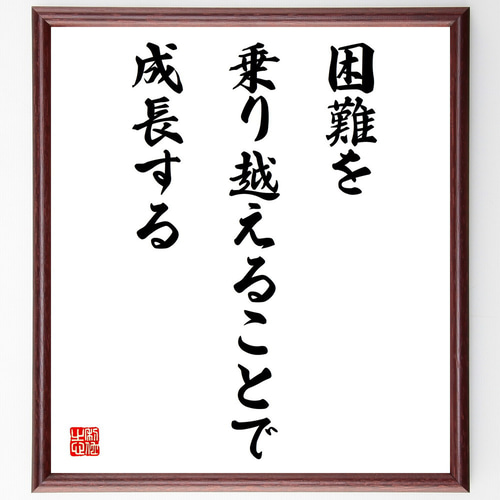 困難を
乗り越えることで
成長する